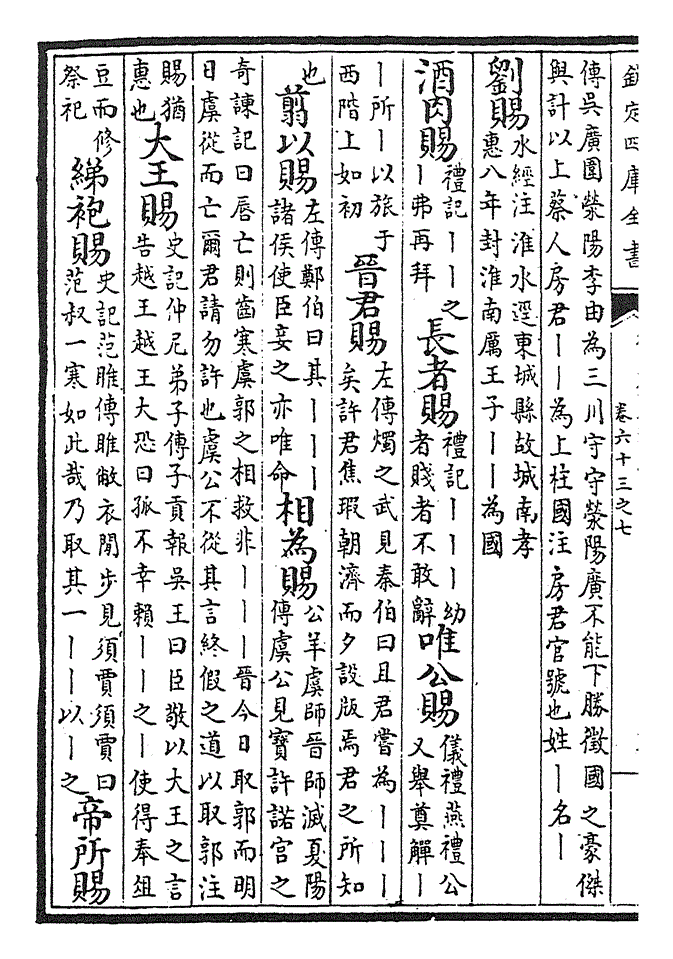 欽定四庫全書
卷六十三之七
傳吳廣圍滎陽李由為三川守守滎陽廣不能下勝徵國之豪傑
與計以上蔡人房君丨丨為上柱國注房君官號也姓丨名丨
劉賜 水經注淮水逕東城縣故城南孝
惠八年封淮南厲王子丨丨為國
酒肉賜 禮記丨丨之
丨弗再拜 長者賜 禮記丨丨丨幼
者賤者不敢辭 唯公賜 儀禮燕禮公
又舉奠觶丨
丨所丨以旅于
西階上如初 晉君賜 左傳燭之武見秦伯曰且君嘗為丨丨丨
矣許君焦瑕朝濟而夕設版焉君之所知
也 翦以賜 左傳鄭伯曰其丨丨丨
諸侯使臣妾之亦唯命 相為賜 公羊虞師晉師滅夏陽
傳虞公見寶許諾宮之
奇諫記曰唇亡則齒寒虞郭之相救非丨丨丨晉今日取郭而明
日虞從而亡爾君請勿許也虞公不從其言終假之道以取郭注
賜猶
惠也 大王賜 史記仲尼弟子傳子貢報吳王曰臣敬以大王之言
告越王越王大恐曰孤不幸賴丨丨之丨使得奉俎
豆而修
祭祀 綈袍賜 史記范睢傳睢敝衣閒步見須賈須賈曰
范叔一寒如此哉乃取其一丨丨以丨之 帝所賜